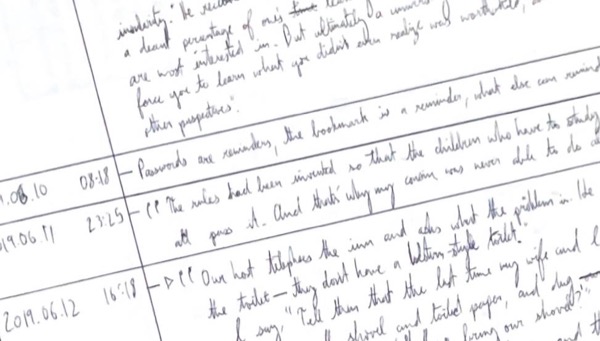 insularity." He
a decent percentage of one's
are most interested in. But ultimately a
force you to learn what you didn't even realize was worthwhile,
other perspectives".
.06.10 08:18 – Passwords are reminders, the bookmark is a reminder, what else can remind
19.06.11 23:25 – "The rules had been invented so that the children who have to study
all pass it. And that's why my cousin was never able to do
2019.06.12 16:18 – ▷ "Our host telephones the inn and asks what the problem is. He
the toilet — they don't have a Western-style toilet."
I say, "Tell them that the last time my wife and I
shovel and toilet paper, and dug
bring our shovel?"